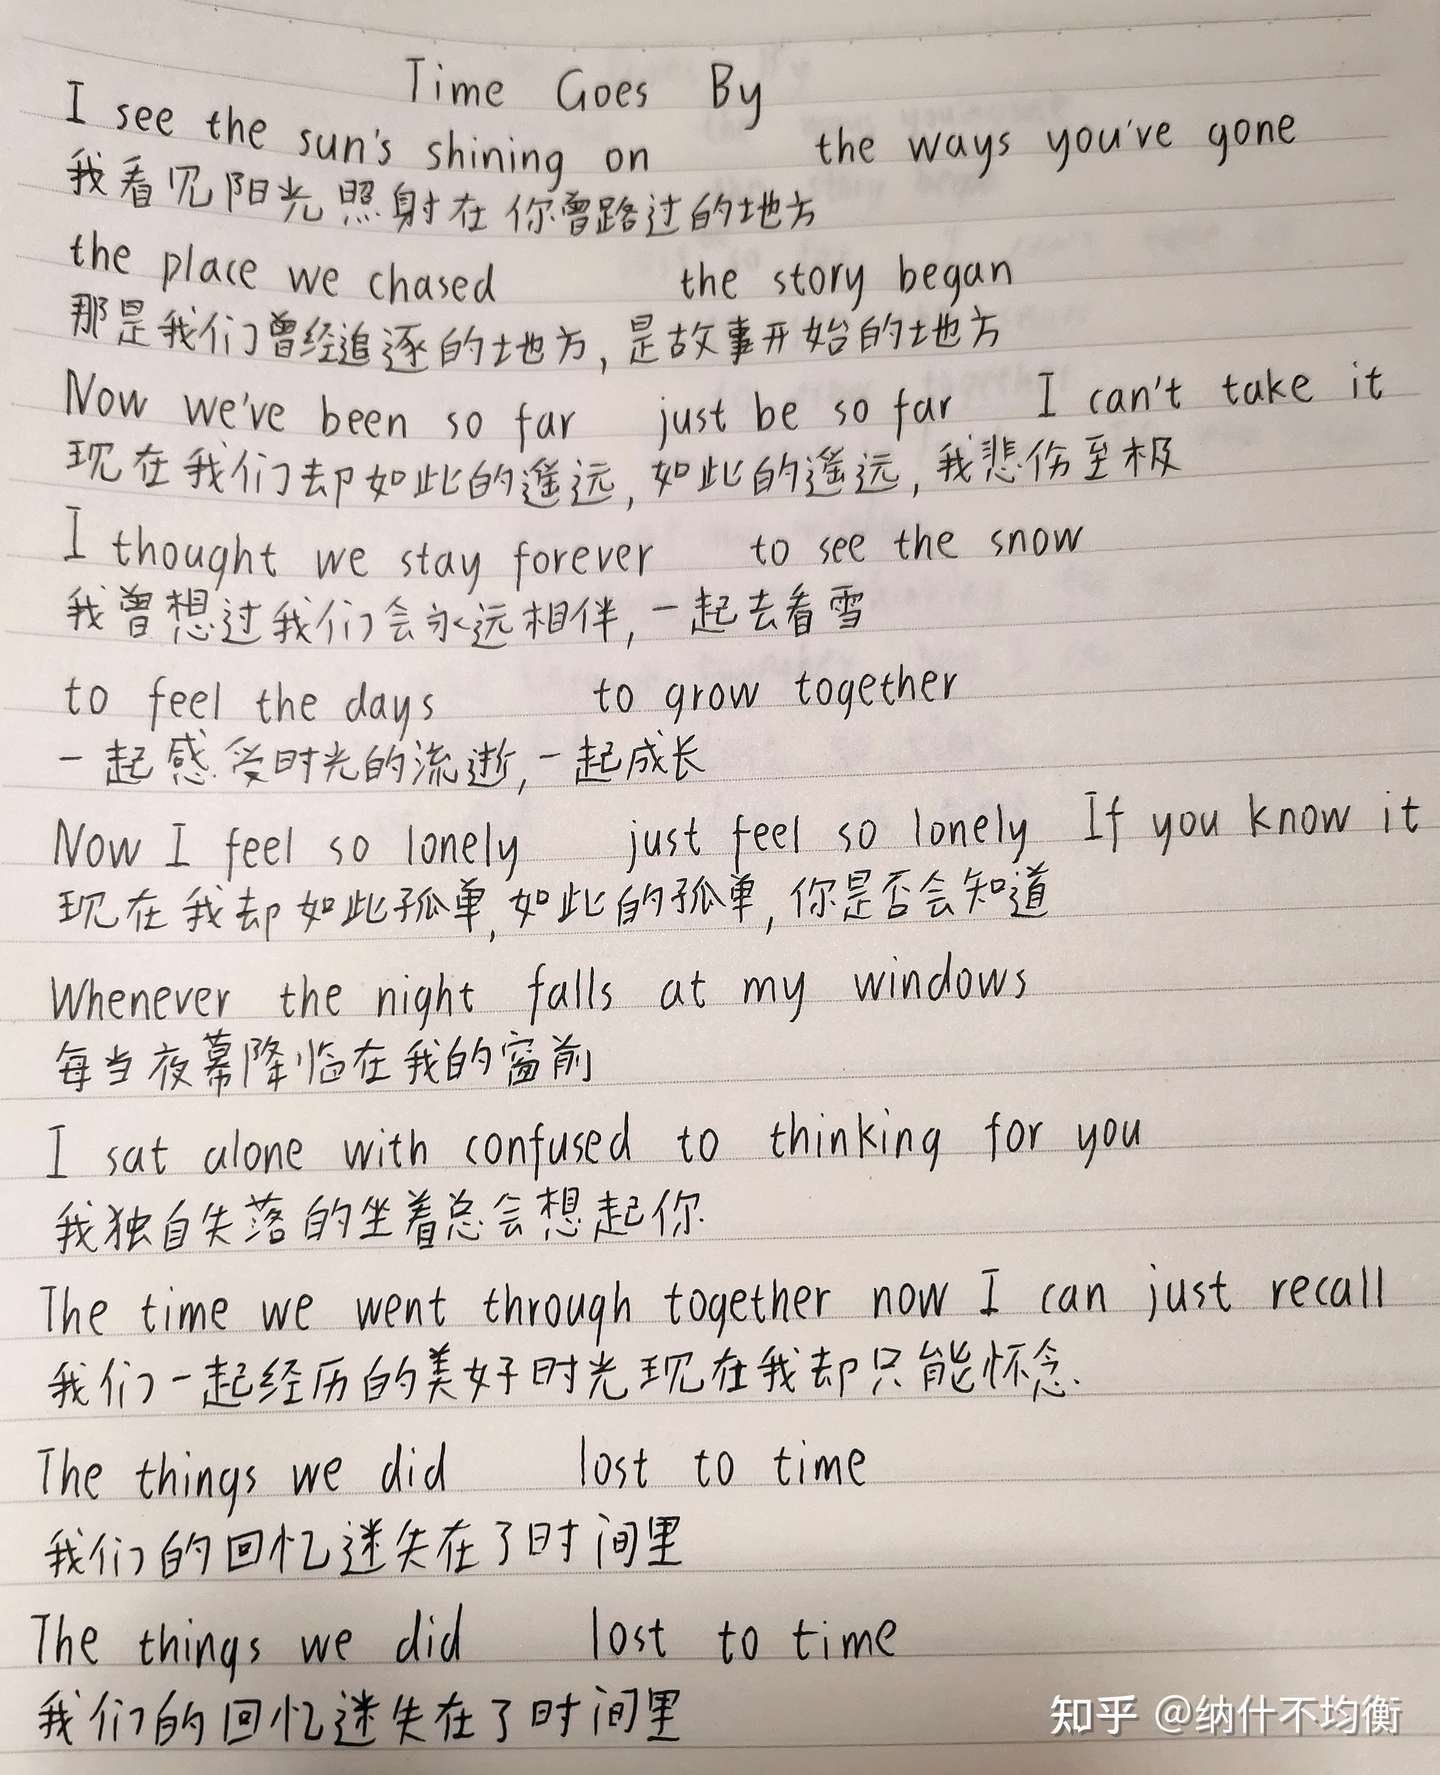 Time Goes By
I see the sun's shining on the ways you've gone
我看见阳光照射在你曾路过的地方
the place we chased the story began
那是我们曾经追逐的地方,是故事开始的地方
Now we've been so far just be so far I can't take it
现在我们却如此的遥远,如此的遥远,我悲伤至极
I thought we stay forever to see the snow
我曾想过我们会永远相伴,一起去看雪
to feel the days to grow together
一起感受时光的流逝,一起成长
Now I feel so lonely just feel so lonely If you know it
现在我却如此孤单,如此的孤单,你是否会知道
Whenever the night falls at my windows
每当夜幕降临在我的窗前
I sat alone with confused to thinking for you
我独自失落的坐着总会想起你.
The time we went through together now I can just recall
我们一起经历的美好时光现在我却只能怀念.
The things we did lost to time
我们的回忆迷失在了时间里
The things we did lost to time
我们的回忆迷失在了时间里
知乎 @纳什不均衡